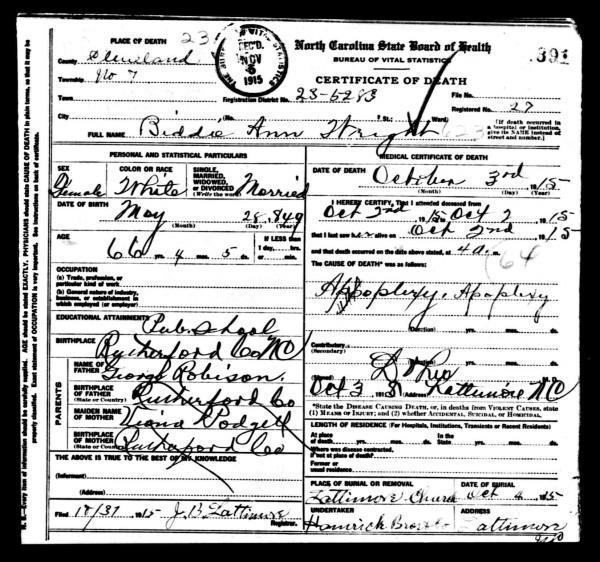 PLACE OF DEATH 23
County Cleveland
Township No 7
Town
City
THE BUREAU OF VITAL STATISTICS
REC'D.
NOV
1915
North Carolina State Board of Health
BUREAU OF VITAL STATISTICS
CERTIFICATE OF DEATH
391
Registration District No. 23-6283
File No.
Registered No. 27
(No. St.; Ward)
[If death occurred in a hospital or institution, give its NAME instead of street and number.]
FULL NAME Biddie Ann Wright
PERSONAL AND STATISTICAL PARTICULARS
SEX Female
COLOR OR RACE White
SINGLE, MARRIED, WIDOWED, OR DIVORCED (Write the word) Married
DATE OF BIRTH
May 28, 849
(Month) (Day) (Year)
AGE
66 yrs. 4 mos. 5 ds.
If LESS than 1 day, hrs. or min.
OCCUPATION
(a) Trade, profession, or particular kind of work
(b) General nature of industry, business, or establishment in which employed (or employer)
EDUCATIONAL ATTAINMENTS Pub. School
BIRTHPLACE Rutherford Co NC
PARENTS
NAME OF FATHER George Robison.
BIRTHPLACE OF FATHER (State or Country) Rutherford Co
MAIDEN NAME OF MOTHER Padgett
BIRTHPLACE OF MOTHER (State or Country) Rutherford Co
THE ABOVE IS TRUE TO THE BEST OF MY KNOWLEDGE
(Informant)
(Address)
Filed 1915 J. B. Lattimore
Registrar.
MEDICAL CERTIFICATE OF DEATH
DATE OF DEATH October 3rd 1915
(Month) (Day) (Year)
I HEREBY CERTIFY, That I attended deceased from
Oct 2nd 1915 to Oct 2 1915
that I last saw her alive on Oct 2nd 1915
and that death occurred on the date above stated, at 4 a. m.
64
The CAUSE OF DEATH* was as follows:
Apoplexy
(Duration) yrs. mos. ds.
Contributory
(Secondary)
(Duration) yrs. mos. ds.
(Signed)
Oct 3 1915 (Address) Lattimore NC
*State the DISEASE CAUSING DEATH, or, in deaths from VIOLENT CAUSES, state (1) MEANS OF INJURY; and (2) whether ACCIDENTAL, SUICIDAL, OR HOMICIDAL.
LENGTH OF RESIDENCE (For Hospitals, Institutions, Transients or Recent Residents)
At place of death yrs. mos. ds. In the State yrs. mos. ds.
Where was disease contracted, if not at place of death?
Former or usual residence
PLACE OF BURIAL OR REMOVAL
Lattimore Church
DATE OF BURIAL
Oct 4 1915
UNDERTAKER
Hamrick Bros
ADDRESS
Lattimore
NC